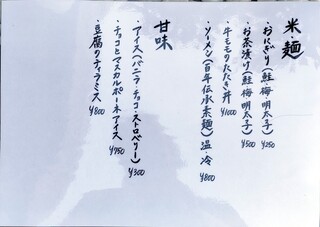 米・麺
・おにぎり(鮭 梅 明太子) ¥250
・お茶漬け(鮭 梅 明太子) ¥500
・牛モモのたたき丼 ¥1000
・ソーメン(百年伝承糸麺)温・冷 ¥800
甘味
・アイス(バニラ・チョコ・ストロベリー) ¥300
・チョコとマスカルポーネアイス ¥750
・豆腐のティラミス ¥800